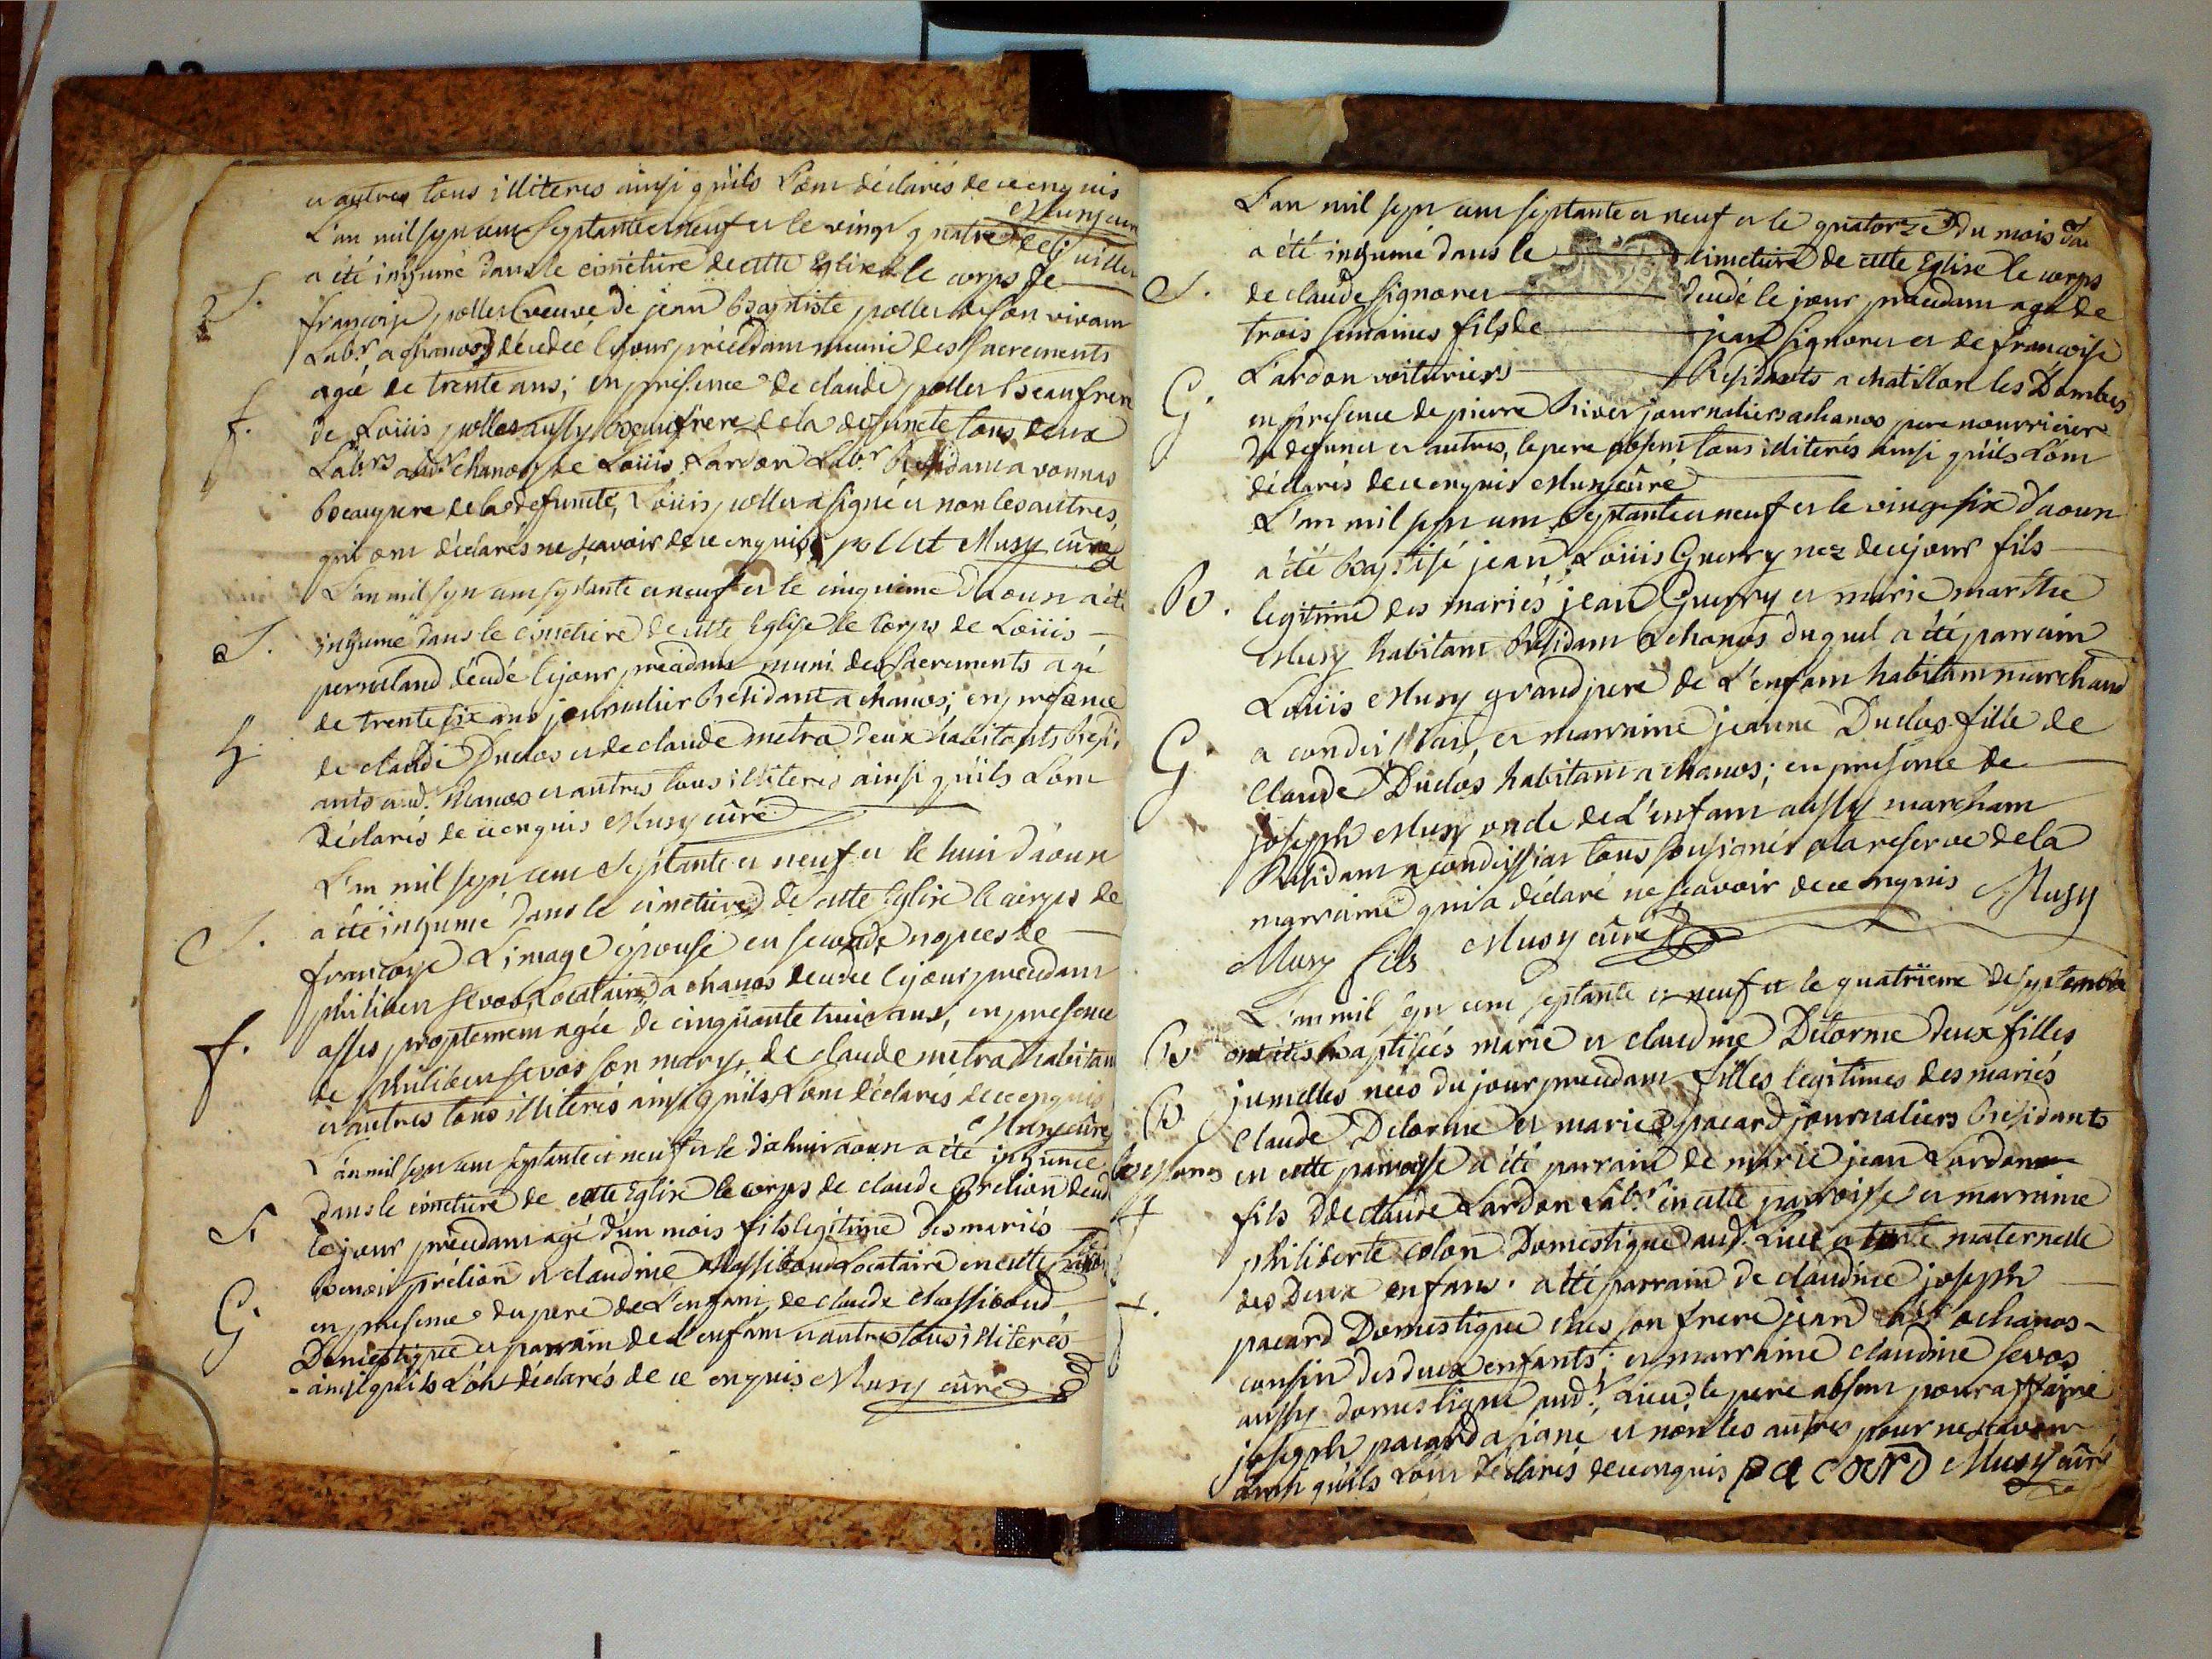 et autres tous illiteres ainsi qu'ils L'ont déclarés de ce enquis
Musy curé
L'an mil sept cent septante et neuf et le vingt quatre de juillet
a été inhumé dans le cimetiere de cette Eglise le corps de
S.
françoise pollet veuve de jean Baptiste pollet de son vivant
Lab.r a chanos décedée le jour précédant munie des Sacrements
agée de trente ans; en présence de claude pollet beaufrere
f.
de Loüis pollet aussy beaufrere de la defuncte tous deux
Lab.rs aud.t chanos, de Loüis Lardon Lab.r Residant a vonnas
beaupere de la defuncte, Loüis pollet a signé et non les autres,
qui ont déclarés ne scavoir de ce enquis pollet Musy curé
L'an mil sept cent septante et neuf et le cinquieme d'aoust a été
S.
inhumé dans le cimetiere de cette Eglise le corps de Loüis
décedé le jour précédant muni des Sacrements agé
de trente six ans journalier Residant a chanos; en présence
h.
de claude Duclos et de claude metra deux habitants Resid
ants aud.t chanos et autres tous illiterés ainsi qu'ils L'ont
déclarés de ce enquis Musy curé
L'an mil sept cent septante et neuf et le huit d'aoust
a été inhumé dans le cimetiere de cette Eglise le corps de
S.
françoise Limage épouse en seconde nopces de
philibert sevos Locataire a chanos decedée le jour précedant
asses proptement agée de cinquante huit ans, en presence
f.
de philibert sevos son mary, de claude metra habitant
et autres tous illiterés ainsi qu'ils L'ont déclarés de ce enquis
Musy curé
L'an mil sept cent septante et neuf et le dixhuit aoust a été inhumé
dans le cimetiere de cette Eglise le corps de claude prelion decedé
S.
le jour précedant agé d'un mois fils legitime des mariés
benoit prélion et claudine chassiboud Locataire en cette
G.
en presence du pere de L'enfant, de claude chassiboud
Domestique et parrain de L'enfant et autres tous illiterés
ainsi qu'ils L'ont déclarés de ce enquis Musy curé
L'an mil sept cent septante et neuf et le quatorze du mois
a été inhumé dans le cimetiere de cette Eglise le corps
S.
de claude signoret decedé le jour précedant agé de
trois semaines fils de jean signoret et de françoise
Lardon voituriers Residants a chatillon les Dombes
G.
en presence de pierre River journaliers a chanos pere nourricier
du defunct et autres, le pere absent tous illiterés ainsi qu'ils L'ont
déclarés de ce enquis Musy curé
L'an mil sept cent septante et neuf et le vingt six d'aoust
a été baptisé jean Loüis Guerry nez de ce jour fils
B.
legitime des mariés jean Guerry et marie marthe
Musy habitant Residant a chanos duquel a été parrain
Loüis Musy grand pere de L'enfant habitant marchand
G.
a condeissiat, et marraine jeanne Duclos fille de
Claude Duclos habitant a chanos; en presence de
joseph Musy oncle de L'enfant aussy marchant
Residant a condeissiat tous sousignés a la reserve de la
marraine qui a déclaré ne scavoir de ce enquis Musy
Musy fils Musy curé
L'an mil sept cent septante et neuf et le quatrieme de septembre
B.
ont étés baptisées marie et claudine Delorme deux filles
B.
jumelles nées du jour précedant filles legitimes des mariés
Claude Delorme et marie pacard journaliers Residants
en cette parroisse a été parrain de marie jean Lardon
f
fils de claude Lardon Lab.r en cette parroisse et marraine
philiberte colon Domestique aud.t Lieu et tante maternelle
des deux enfans. a été parrain de claudine joseph
f.
pacard Domestique ches son frere jean a chanos
cousin des deux enfants; et marraine claudine sevos
aussy domestique aud.t Lieu, le pere absent pour affaire
joseph pacard a signé et non les autres pour ne scavoir
ainsi qu'ils L'ont déclarés de ce enquis pacard Musy curé